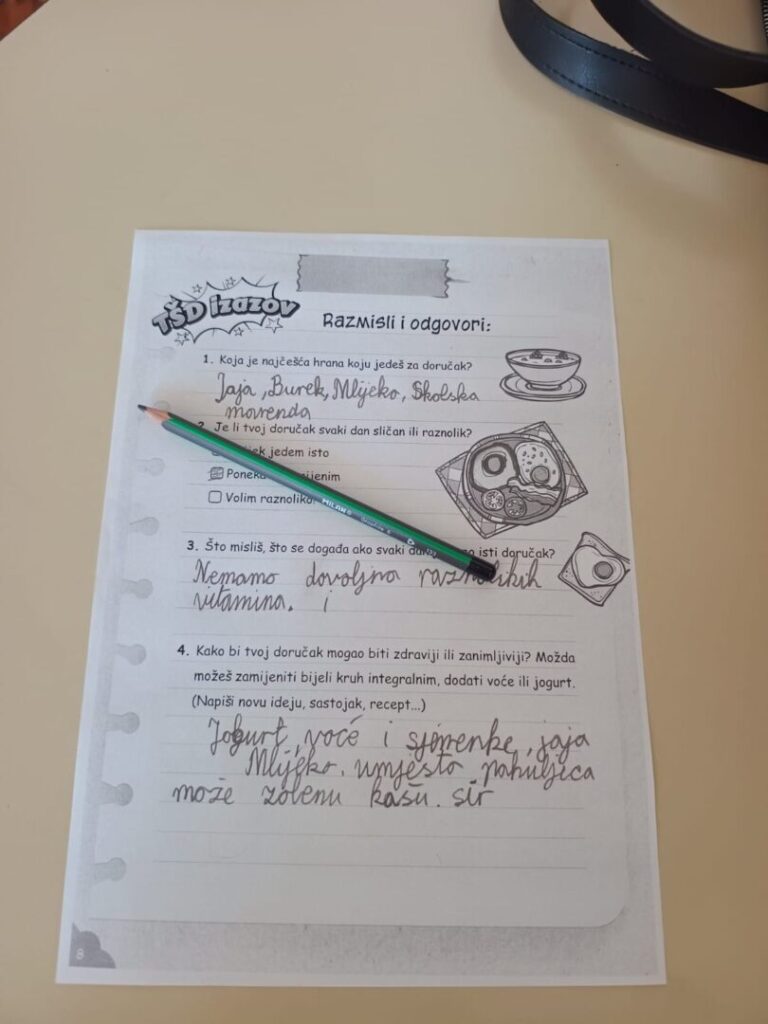 TŠD izazov
Razmisli i odgovori:
1. Koja je najčešća hrana koju jedeš za doručak?
Jaja, Burek, Mlijeko, Školska
marenda
Je li tvoj doručak svaki dan sličan ili raznolik?
jedem isto
Volim raznoliko
MILAN
3. Što misliš, što se događa ako svaki isti doručak?
Nemamo dovoljno raznolikih
vitamina. i
4. Kako bi tvoj doručak mogao biti zdraviji ili zanimljiviji? Možda
možeš zamijeniti bijeli kruh integralnim, dodati voće ili jogurt.
(Napiši novu ideju, sastojak, recept...)
Jogurt, voće i sjemenke, jaja
Mlijeko. umjesto pahuljica
može zobenu kašu. sir
8